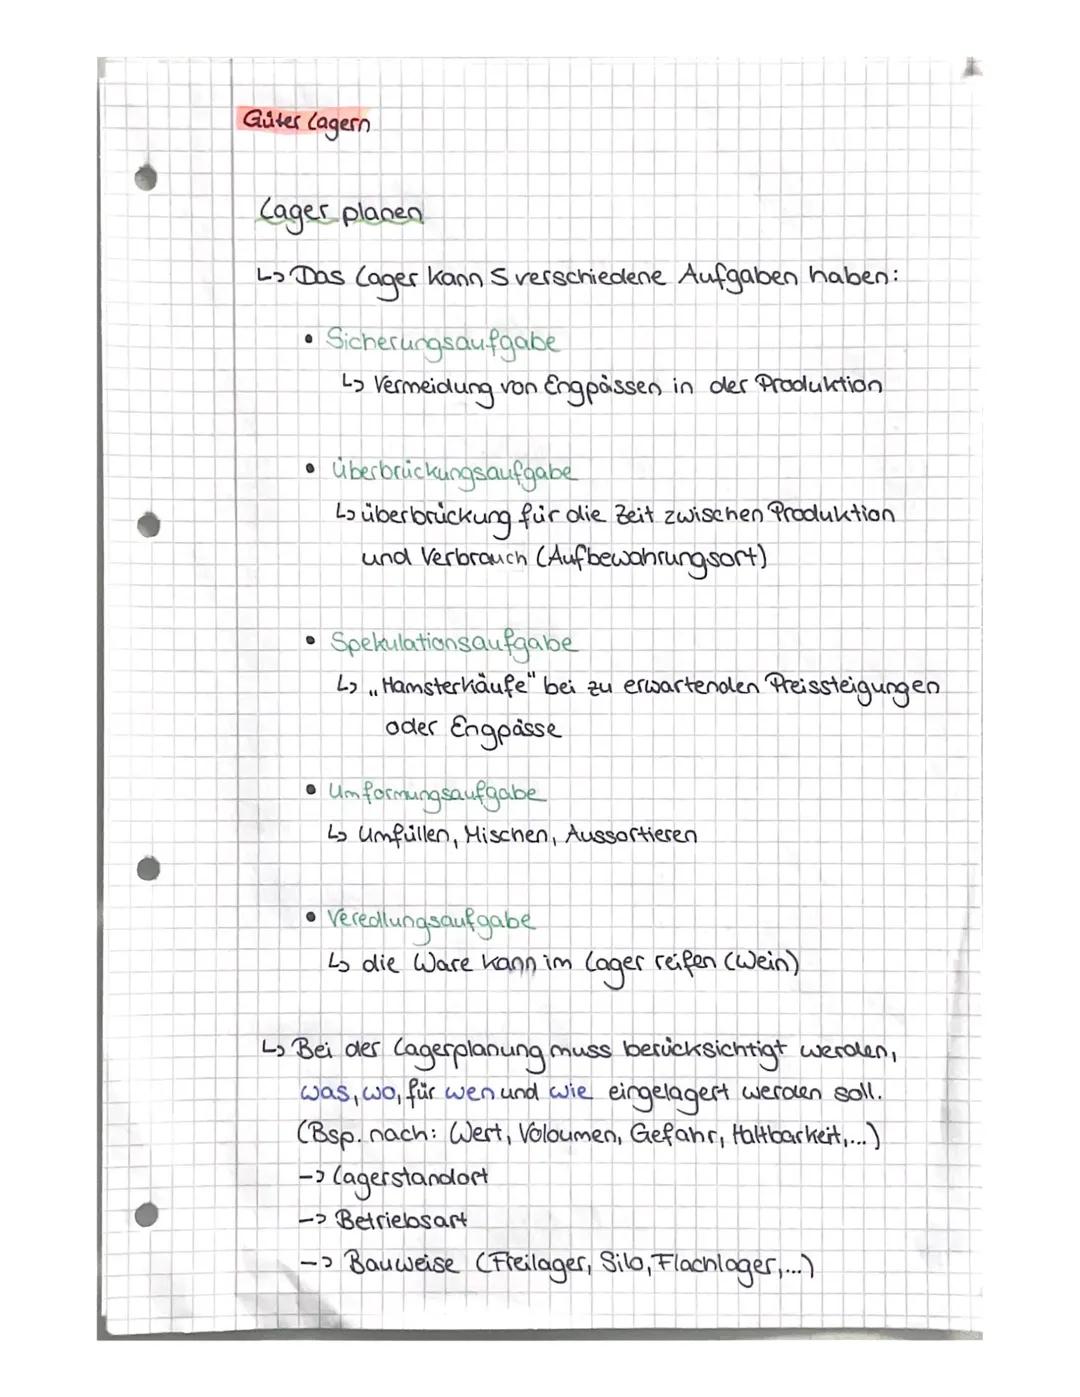 Güter Lagern
Lager planen
↳ Das Lager kann 5 verschiedene Aufgaben haben:
• Sicherungsaufgabe
↳ Vermeidung von Engpässen in der Produktion
• Überbrückungsaufgabe
↳ überbrückung für die Zeit zwischen Produktion
und Verbrauch (Aufbewahrungsort)
• Spekulationsaufgabe
↳ „Hamsterkäufe" bei zu erwartenden Preissteigungen
oder Engpässe
• Umformungsaufgabe
↳ Umfüllen, Mischen, Aussortieren
• Veredlungsaufgabe
↳ die Ware kann im Lager reifen (Wein)
↳ Bei der Lagerplanung muss berücksichtigt werden,
was, wo, für wen und wie eingelagert werden soll.
(Bsp. nach: Wert, Voloumen, Gefahr, Haltbarkeit,...)
-> Lagerstandort
-> Betriebsart
-> Bauweise (Freilager, Silo, Flachlager,...)